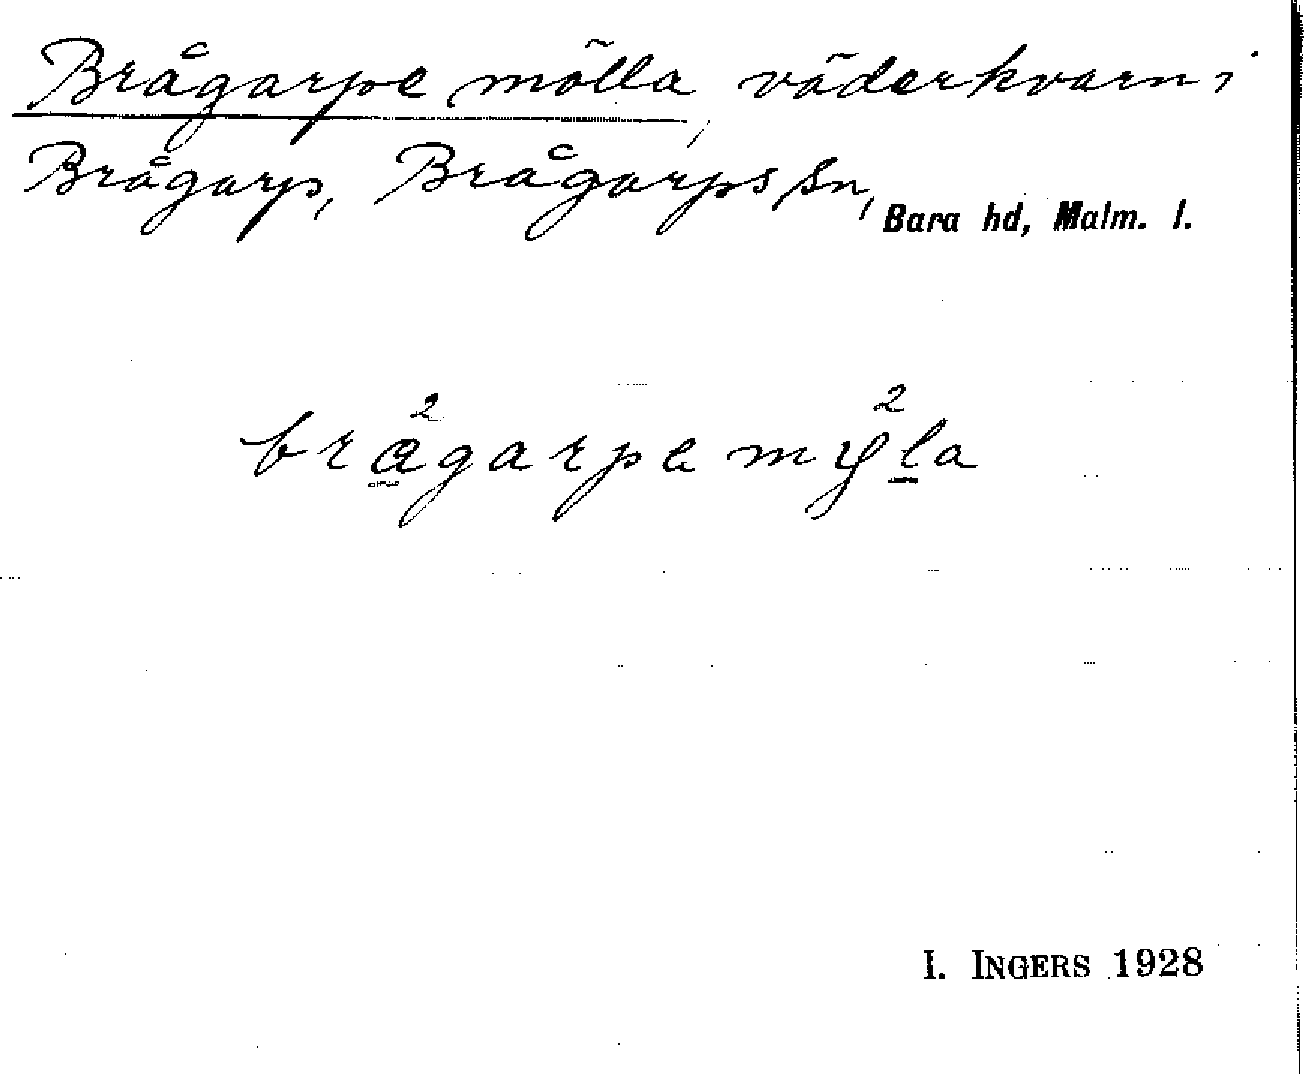 Brågarpe mölla, väderkvarn i
Brågarp, Brågarps sn, Bara hd, Malm. l.
brå²garpe my²la
I. INGERS 1928